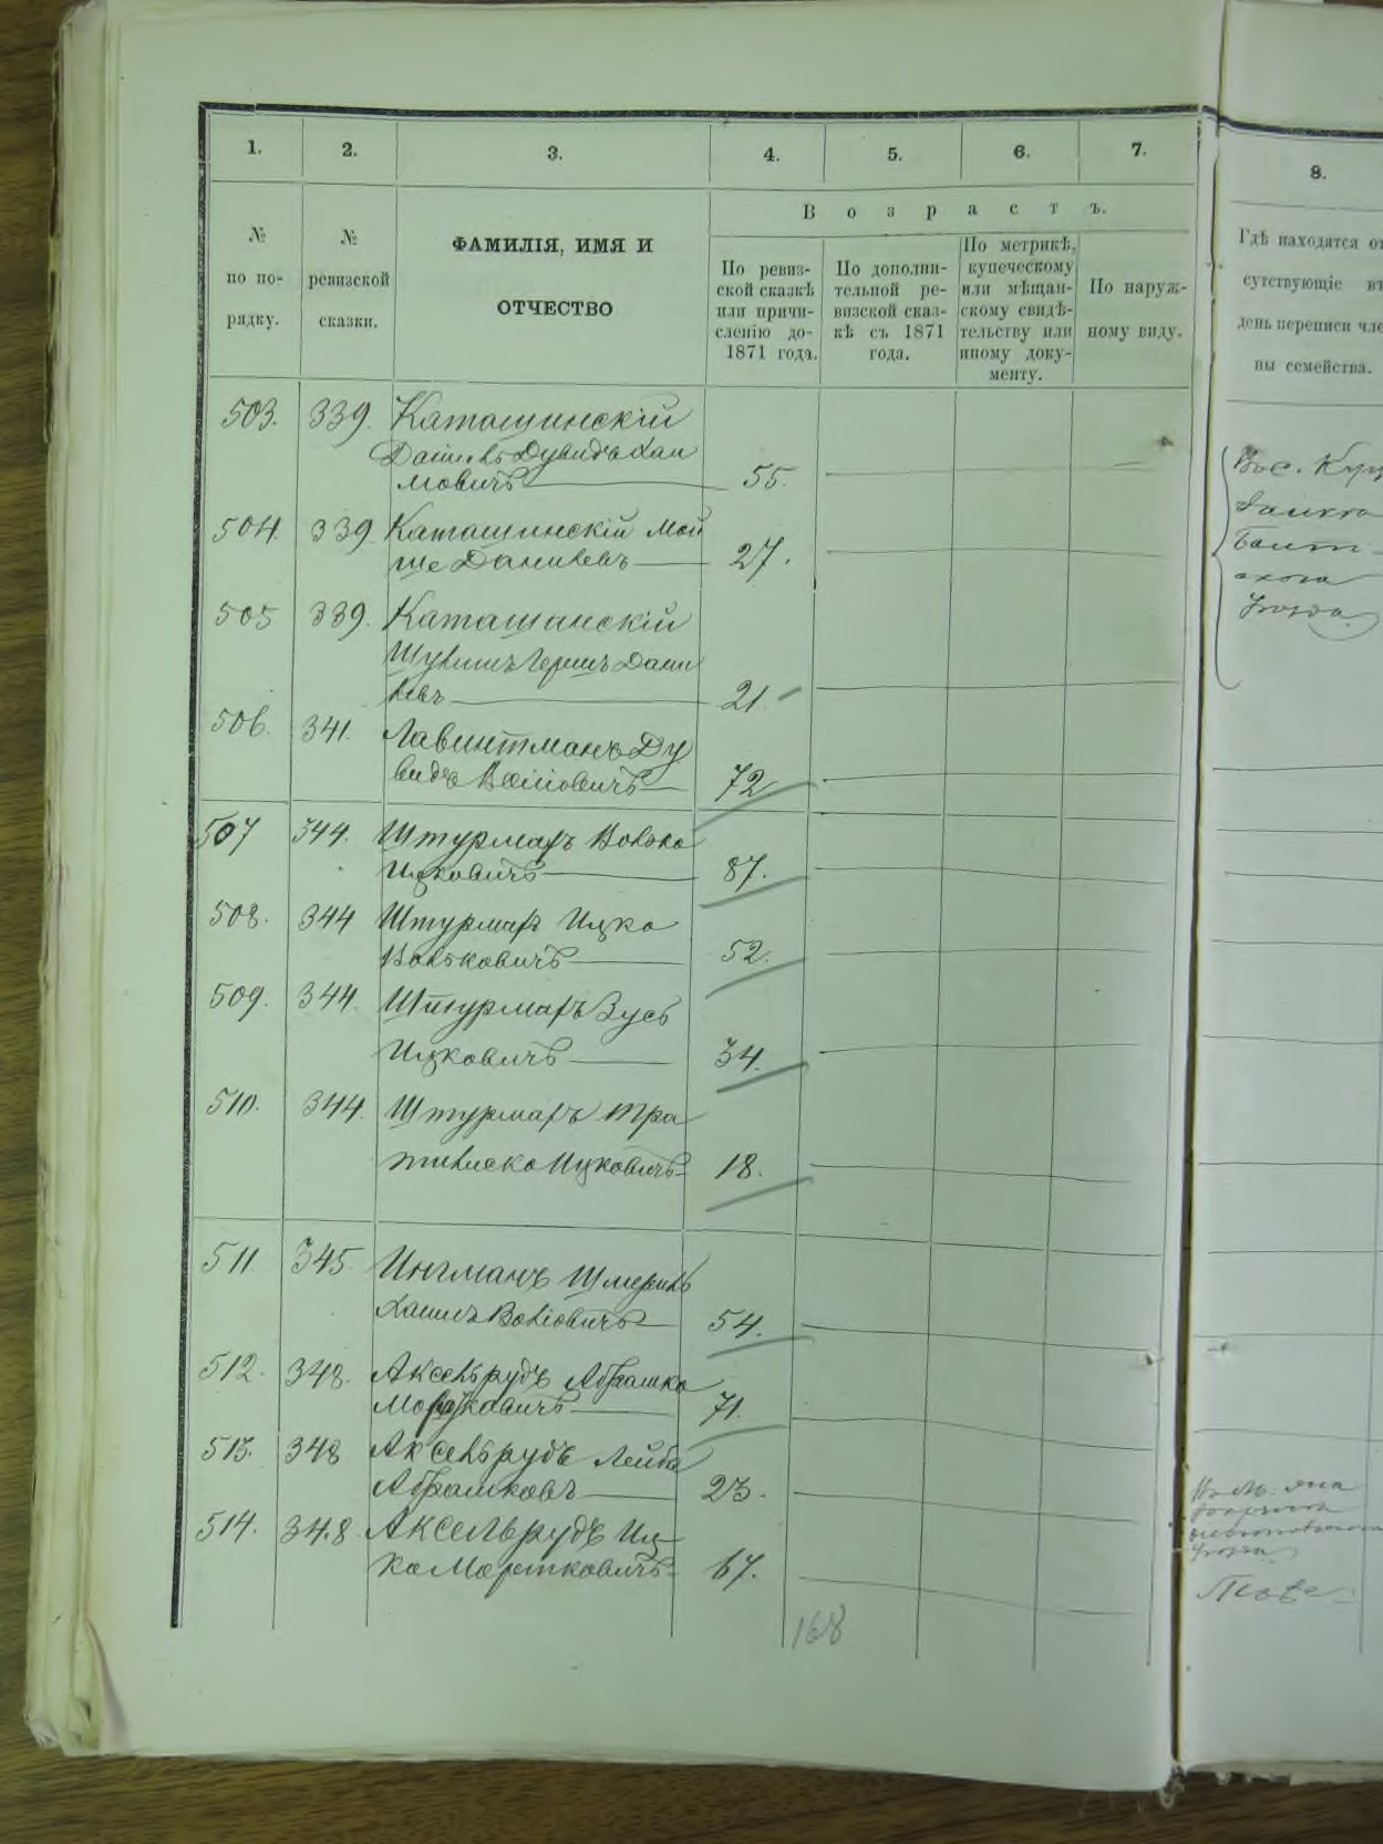 1. 2. 3. 4. 5. 6. 7. 8.
Возрастъ.
№ по по-
рядку.
№
ревизской
сказки.
ФАМИЛІЯ, ИМЯ И
ОТЧЕСТВО
По ревиз-
ской сказкѣ
или причи-
сленію до-
1871 года.
По дополни-
тельной ре-
визской сказ-
кѣ съ 1871
года.
По метрикѣ,
купеческому
или мѣщан-
скому свидѣ-
тельству или
иному доку-
менту.
По наруж-
ному виду.
Гдѣ находятся от
сутствующіе въ
день переписи чле
ны семейства.
503. 339. Каташинскій
Дувидъ Хаи
мовичъ 55.
504. 339 Каташинскій Мой
ше Данилевъ 27.
505 339. Каташинскій
Герш Дани
левъ 21.
506. 341. Лавинтманъ Ду
видъ 72
507 344. Штурмаръ Волько
Ицковичъ 87.
508. 344 Штурмаръ Ицко
Вольковичъ 52.
509. 344. Штурмаръ Зусь
Ицковичъ 34.
510. 344. Штурмаръ
Ицковичъ 18.
511. 345 Ингманъ Шмериль
Хаимъ Воліовичъ 54.
512. 348. Аксельрудъ Абрашко
71.
513. 348 Аксельрудъ Лейба
Абрашковъ 23.
514. 348 Аксельрудъ Иц-
ко Мортковичъ 67.
уѣзда
168